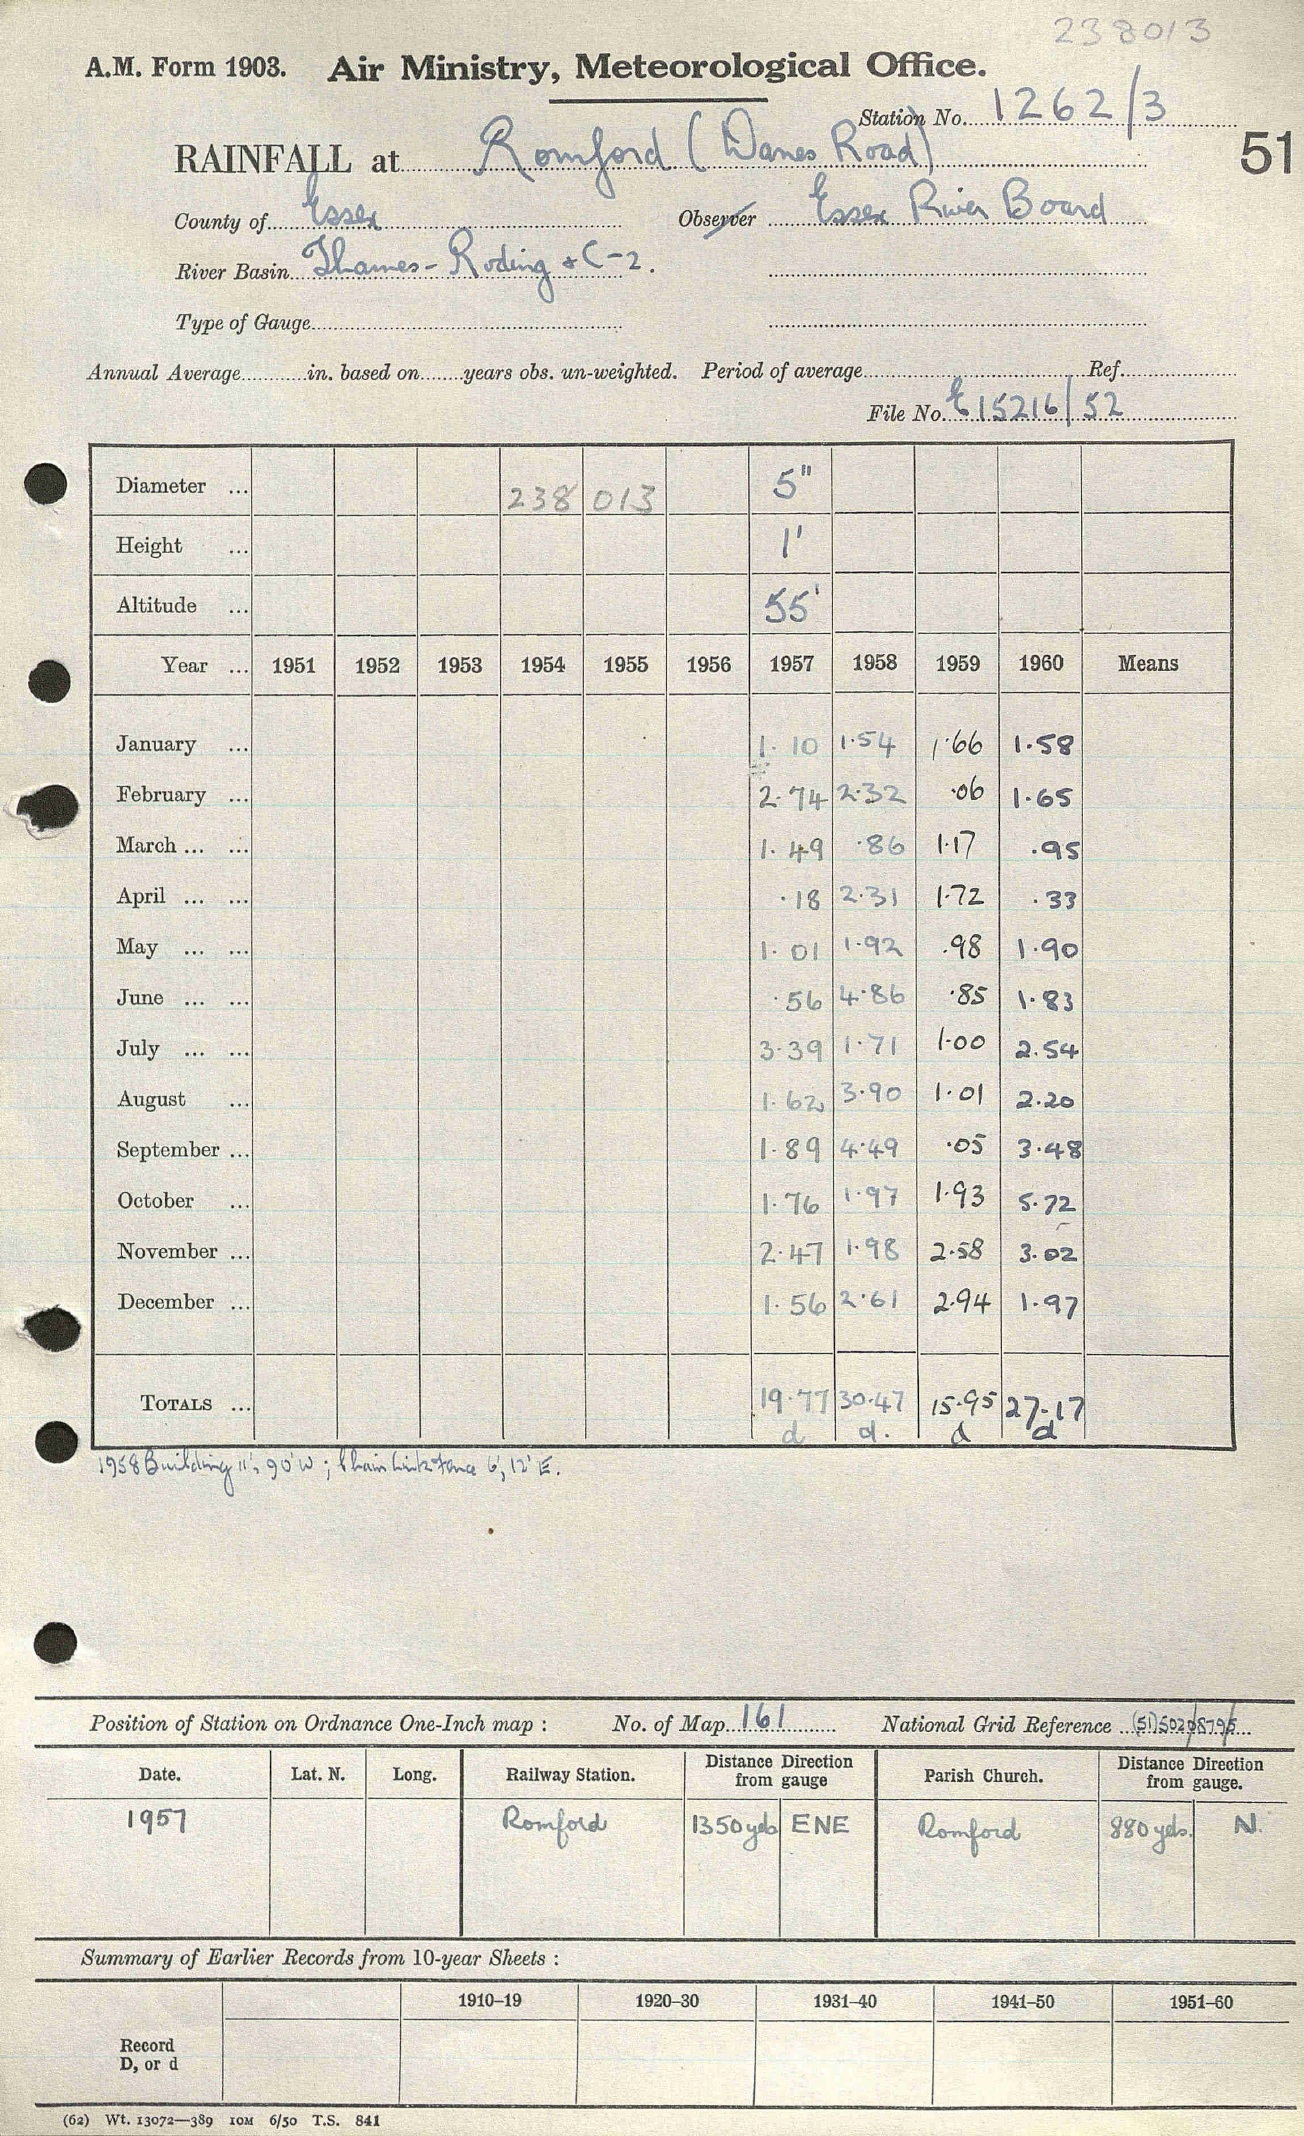 238013
A.M. Form 1903. Air Ministry, Meteorological Office.
Station No. 1262/3
RAINFALL at Romford (Danes Road)
51
County of Essex Observer Essex River Board
River Basin Thames - Roding & C-2.
Type of Gauge
Annual Average in. based on years obs. un-weighted. Period of average Ref.
File No. E15216/52
Diameter ... 238 013 5"
Height ... 1'
Altitude ... 55'
Year ... 1951 1952 1953 1954 1955 1956 1957 1958 1959 1960 Means
January ... 1.10 1.54 1.66 1.58
February ... 2.74 2.32 .06 1.65
March ... ... 1.49 .86 1.17 .95
April ... ... .18 2.31 1.72 .33
May ... ... 1.01 1.92 .98 1.90
June ... ... .56 4.86 .85 1.83
July ... ... 3.39 1.71 1.00 2.54
August ... 1.62 3.90 1.01 2.20
September ... 1.89 4.49 .05 3.48
October ... 1.76 1.97 1.93 5.72
November ... 2.47 1.98 2.58 3.02
December ... 1.56 2.61 2.94 1.97
TOTALS ... 19.77 30.47 15.95 27.17
d d. d d
1958 Building 11', 90' W; Chain link fence 6', 12' E.
Position of Station on Ordnance One-Inch map : No. of Map 161 National Grid Reference (51)
Date. Lat. N. Long. Railway Station. Distance Direction from gauge Parish Church. Distance Direction from gauge.
1957 Romford 1350 yds ENE Romford 880 yds. N.
Summary of Earlier Records from 10-year Sheets :
1910–19 1920–30 1931–40 1941–50 1951–60
Record
D, or d
(62) Wt. 13072—389 10M 6/50 T.S. 841